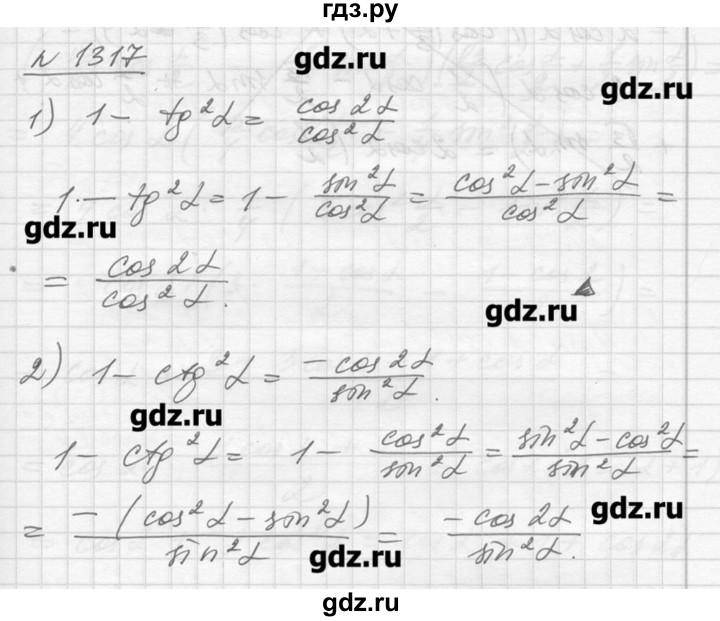 гдз.ру
№ 1317
gdz.ru
gdz.ru
1) 1 - tg²α = cos 2α / cos²α
1 - tg²α = 1 - sin²α / cos²α = cos²α - sin²α / cos²α =
gdz.ru
= cos 2α / cos²α.
gdz.ru
2) 1 - ctg²α = -cos 2α / sin²α.
gdz.ru
1 - ctg²α = 1 - cos²α / sin²α = sin²α - cos²α / sin²α =
gdz.ru
= -(cos²α - sin²α) / sin²α = -cos 2α / sin²α.
gdz.ru
gdz.ru